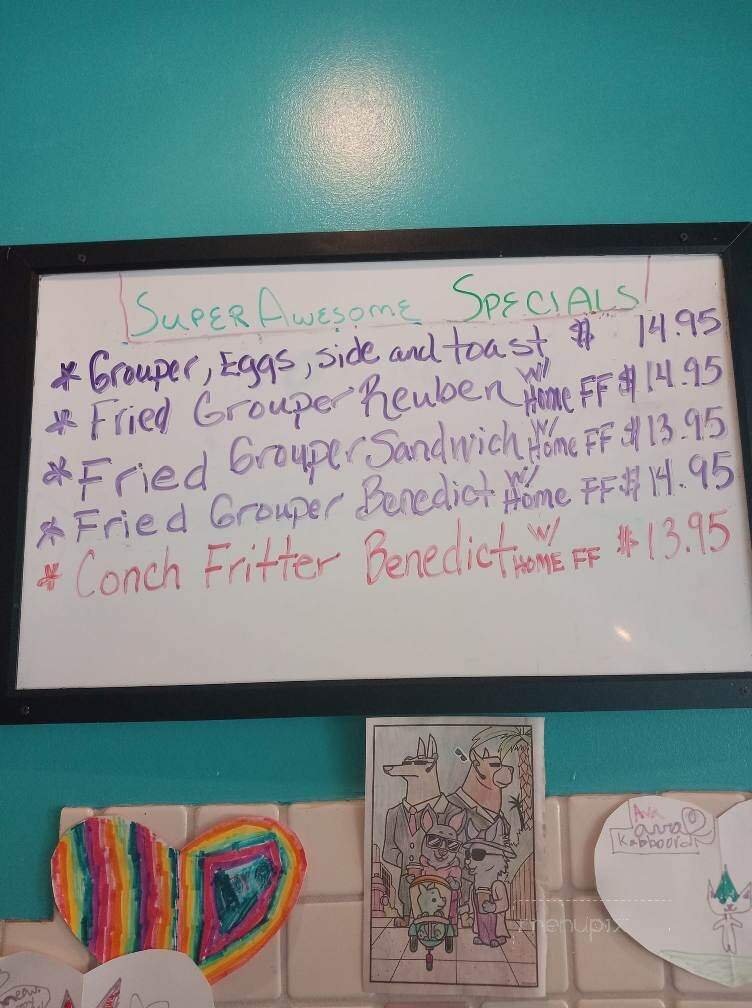 Super Awesome Specials
* Grouper, Eggs, side and toast $ 14.95
* Fried Grouper Reuben w/ Home FF $14.95
* Fried Grouper Sandwich w/ Home FF $13.95
* Fried Grouper Benedict w/ Home FF $14.95
* Conch Fritter Benedict w/ HOME FF $13.95
Ava
ava
menupix